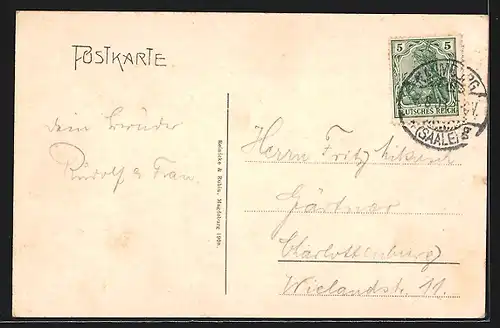 POSTKARTE
5 5
DEUTSCHES REICH
NAUMBURG
(SAALE)
dein Bruder
Rudolf & Frau
Reinicke & Rubin, Magdeburg 1908.
Herrn Fritz
Gärtner
Charlottenburg
Wielandstr. 11.